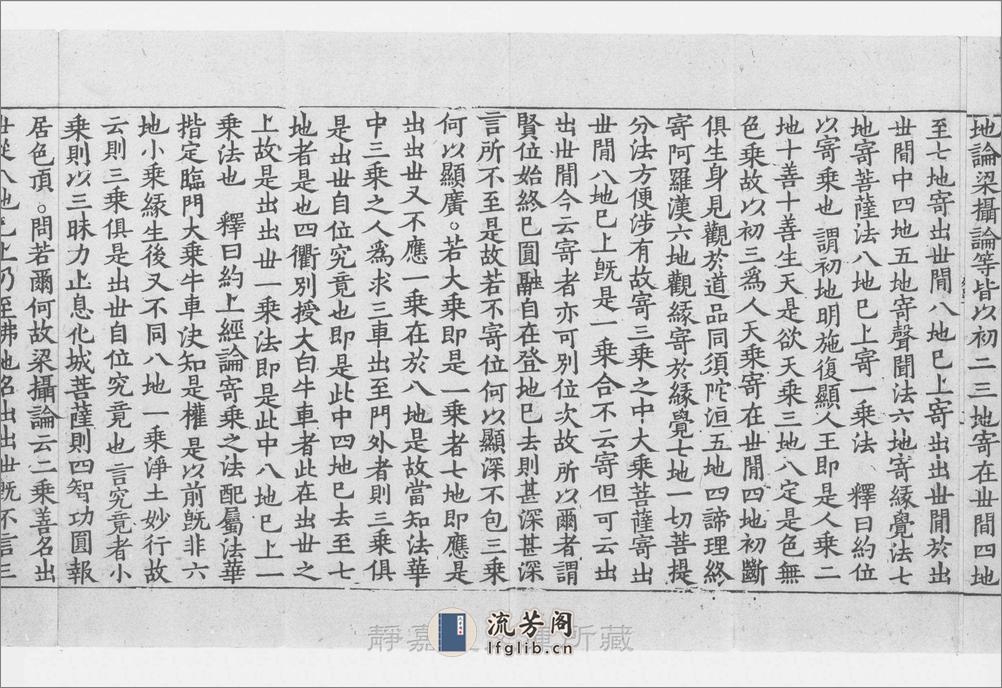 地論梁攝論等皆以初二三地寄在丗間四地
至七地寄出丗間八地已上寄出出丗間於出
丗間中四地五地寄聲聞法六地寄緣覺法七
地寄菩薩法八地已上寄一乗法　釋曰約位
以寄乗也謂初地明施復顯人王即是人乗二
地十善十善生天是欲天乗三地八定是色無
色乗故以初三爲人天乗寄在丗間四地初斷
俱生身見觀於道品同須陀洹五地四諦理終
寄阿羅漢六地觀緣寄於緣覺七地一切菩提
分法方便涉有故寄三乗之中大乗菩薩寄出
丗間八地已上旣是一乗合不云寄但可云出
出丗間今云寄者亦可別位次故所以爾者謂
賢位始終已圓融自在登地已去則甚深甚深
言所不至是故若不寄位何以顯深不包三乗
何以顯廣。若大乗即是一乗者七地即應是
出出丗又不應一乗在於八地是故當知法華
中三乗之人爲求三車出至門外者則三乗俱
是出丗自位究竟也即是此中四地已去至七
地者是也四衢別授大白牛車者此在出丗之
上故是出出丗一乗法即是此中八地已上一
乗法也　釋曰約上經論寄乗之法配屬法華
揩定臨門大乗牛車決知是權是以前旣非六
地小乗緣生後又不同八地一乗淨土妙行故
云則三乗俱是出丗自位究竟也言究竟者小
乗則以三昧力止息化城菩薩則四智功圓報
居色頂。問若爾何故梁攝論云二乗善名出
丗從八地已上乃至佛地名出出丗旣不言三
靜嘉 所藏
流芳阁
lfglib.cn